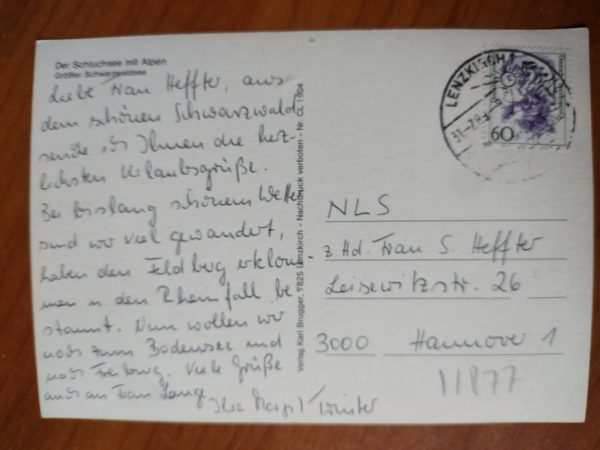 Der Schluchsee mit Alpen
Größter Schwarzwaldsee
Liebe Frau Heffter, aus
dem schönen Schwarzwald
sende ich Ihnen die herz-
lichsten Urlaubsgrüße.
Bei bislang schönem Wetter
sind wir viel gewandert,
haben den Feldberg erklom-
men u. den Rheinfall be
staunt. Nun wollen wir
noch zum Bodensee und
nach Freiburg. Viele Grüße
auch an Frau Lange
Ihre Margit
Verlag Karl Brugger, 7825 Lenzkirch - Nachdruck verboten - Nr. CL 1604
LENZKIRCH 1
60
NLS
z. Hd. Frau S. Heffter
Leisewitzstr. 26
3000 Hannover 1
11877